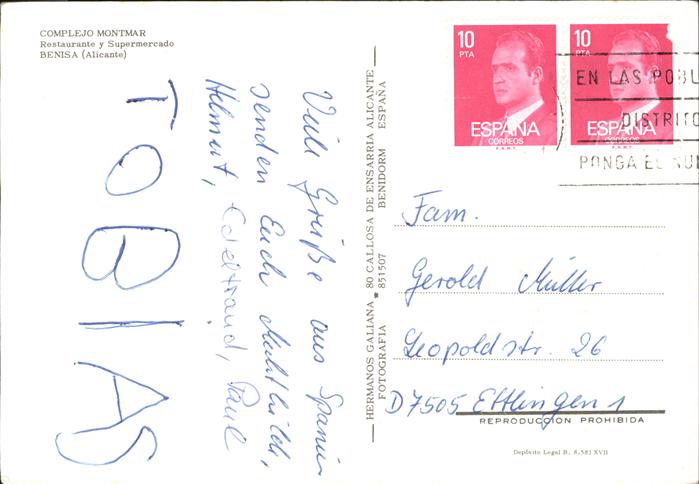 COMPLEJO MONTMAR
Restaurante y Supermercado
BENISA (Alicante)
Viele Grüße aus Spanien
senden Euch Mathilde,
Helmut, Edeltraud, Paul
TOBIAS
HERMANOS GALIANA * 80 CALLOSA DE ENSARRIA ALICANTE
FOTOGRAFIA 851507 BENIDORM ESPAÑA
10
PTA
ESPAÑA
CORREOS
F.N.M.T.
10
PTA
ESPAÑA
CORREOS
F.N.M.T.
EN LAS POBL
DISTRITO
PONGA EL NUM
Fam.
Gerold Müller
Leopoldstr. 26
D 7505 Ettlingen 1
REPRODUCCION PROHIBIDA
Depósito Legal B. 8.583 XVII